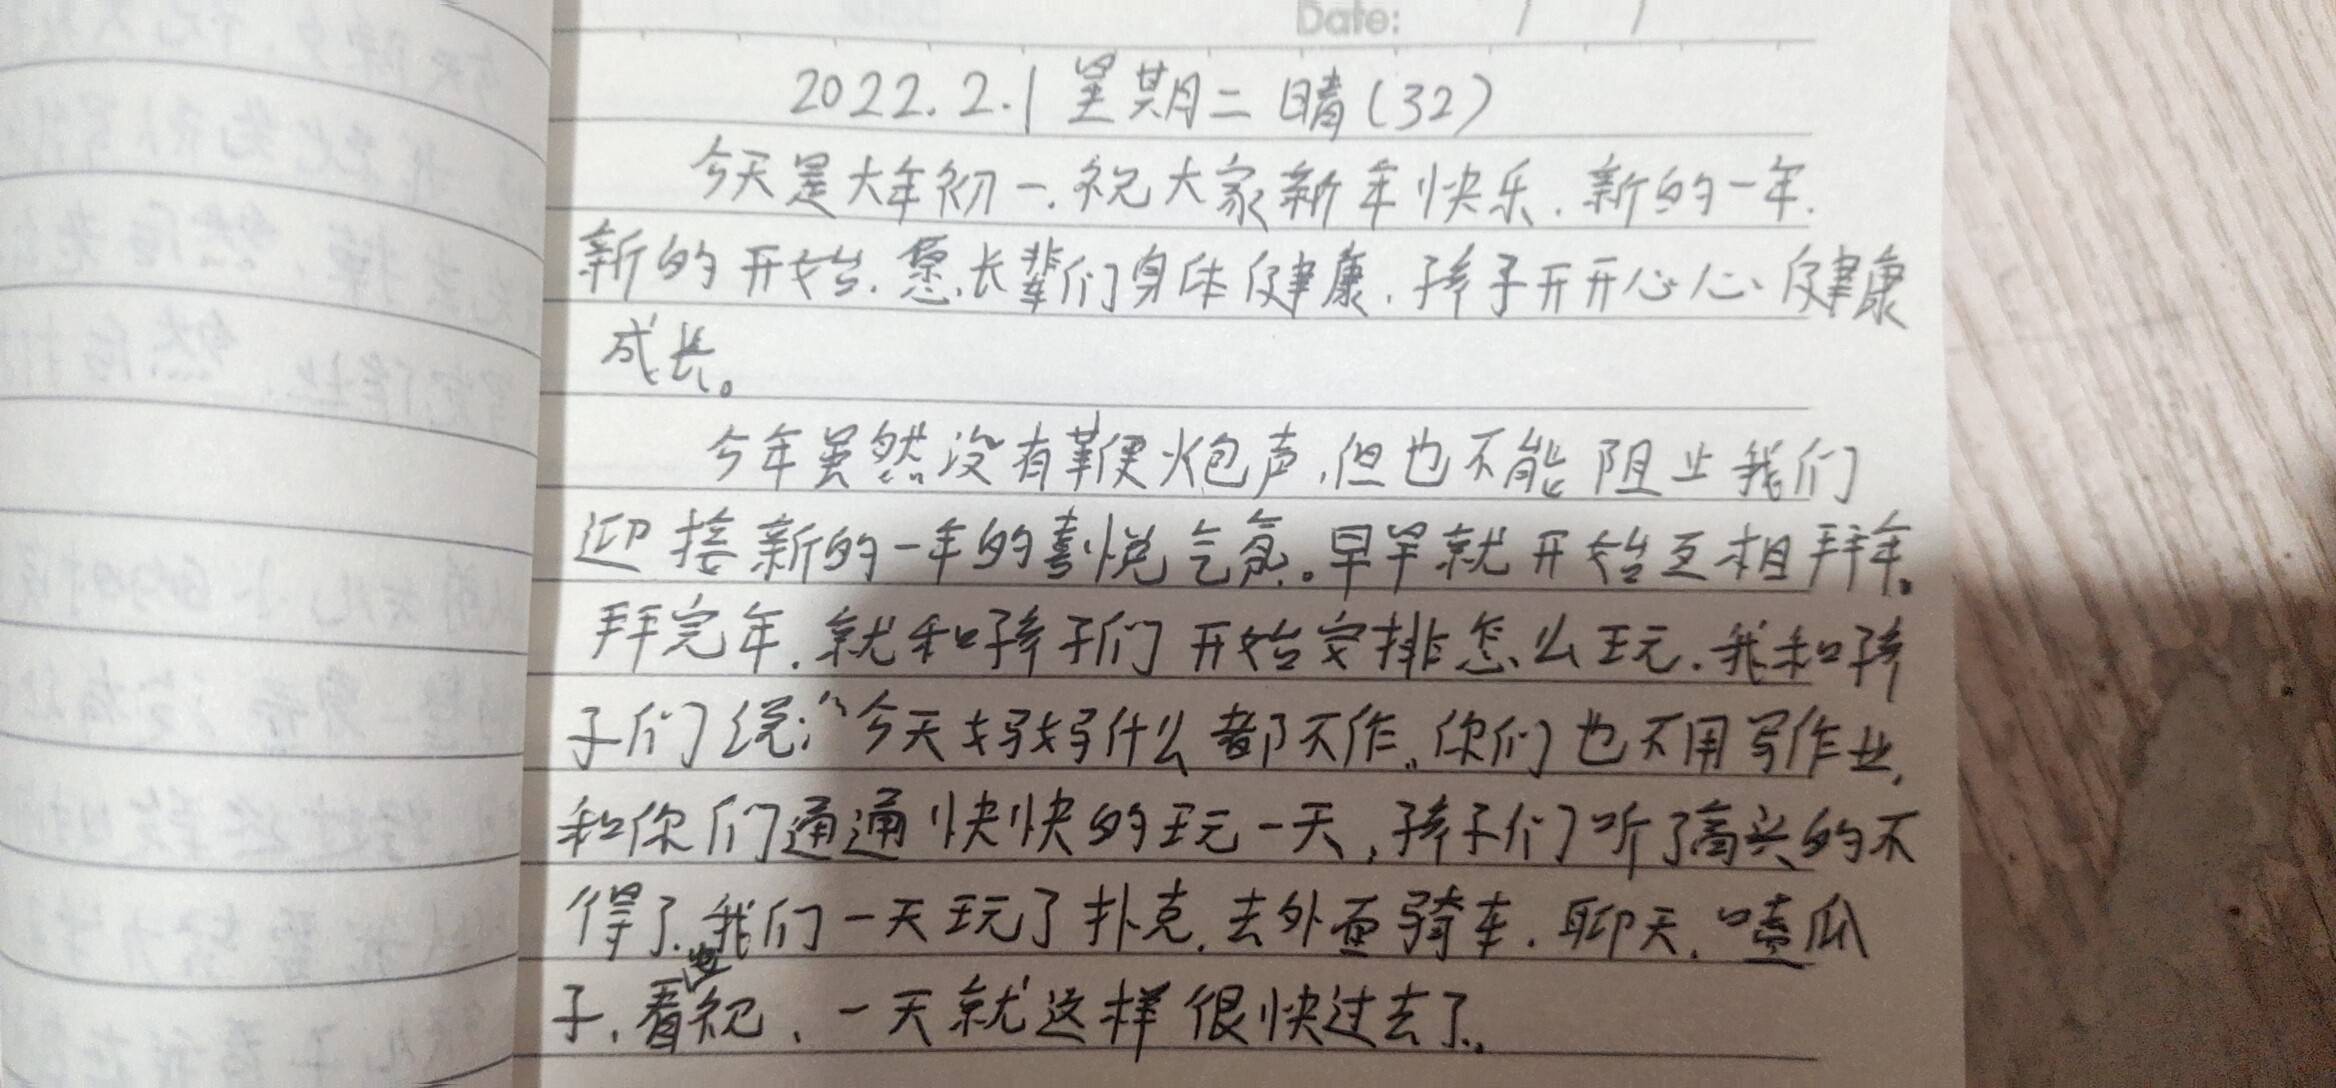 Date: / /
2022.2.1 星期二 晴(32)
今天是大年初一.祝大家新年快乐.新的一年.
新的开始.愿长辈们身体健康.孩子开开心心健康
成长。
今年虽然没有鞭炮声,但也不能阻止我们
迎接新的一年的喜悦气氛。早早就开始互相拜年。
拜完年.就和孩子们开始安排怎么玩.我和孩
子们说:“今天妈妈什么都不作.你们也不用写作业,
和你们通通快快的玩一天,孩子们听了高兴的不
得了.我们一天玩了扑克.去外面骑车.聊天.嗑瓜
子.看电视、一天就这样很快过去了.